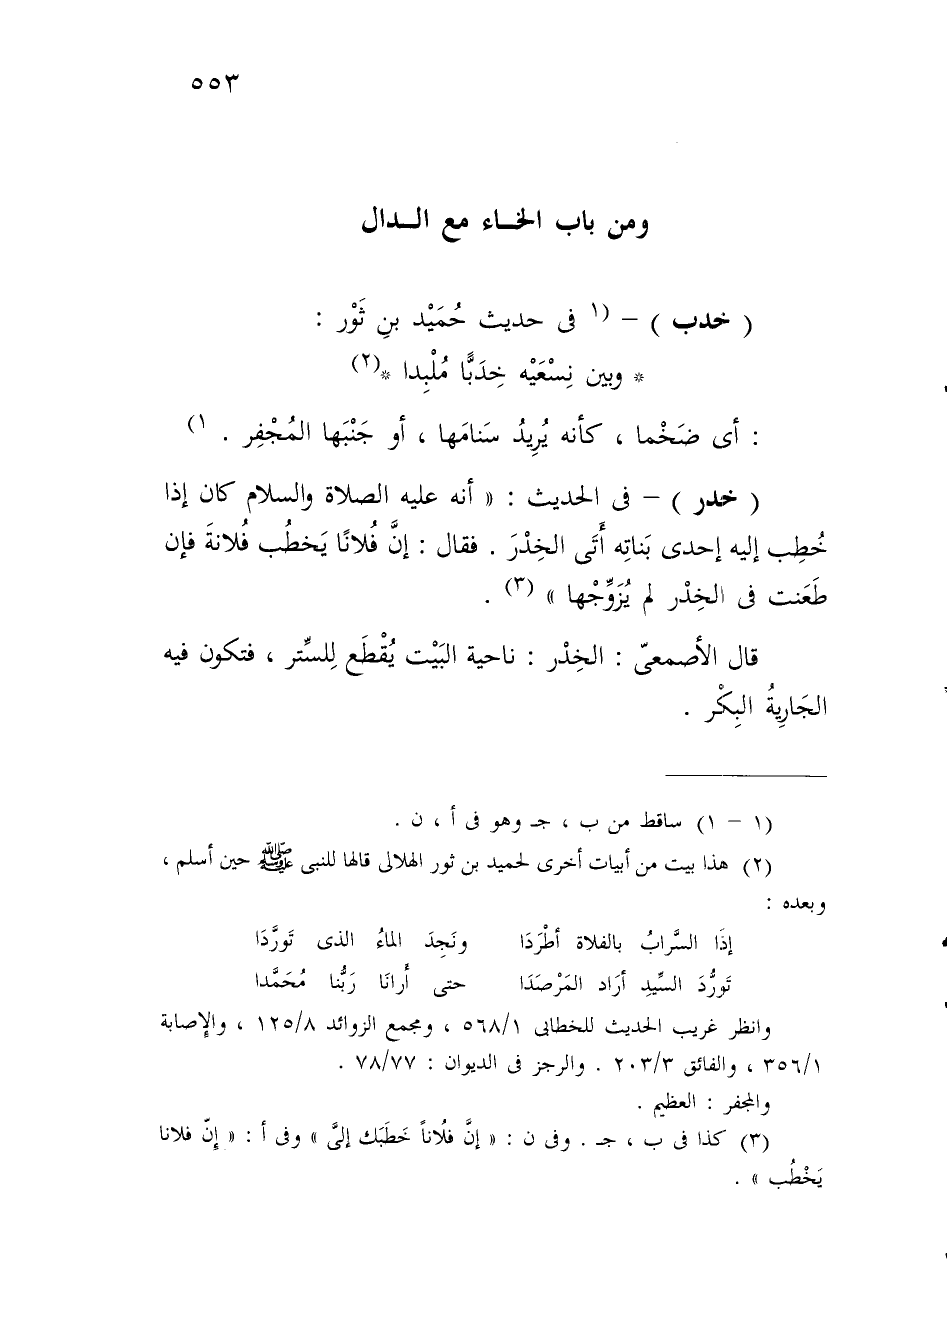 ٥٥٣
ومن باب الخــاء مع الــدال
( خدب ) – (١ فى حديث حُمَيْد بنِ ثَوْر :
* وبين نِسْعَيْه خِدَبًّا مُلْبِدا *(٢)
: أى ضَخْما ، كأنه يُرِيدُ سَنامَها ، أو جَنْبَها المُجْفِر . ١)
( خدر ) – فى الحديث : « أنه عليه الصلاة والسلام كان إذا
خُطِب إليه إحدى بَناتِه أَتَى الخِدْرَ . فقال : إنَّ فُلانًا يَخطُب فُلانةَ فإن
طَعَنت فى الخِدْر لم يُزَوِّجْها » (٣) .
قال الأصمعىّ : الخِدْر : ناحية البَيْت يُقْطَع لِلسِّتر ، فتكون فيه
الجَارِيةُ البِكْر .
(١ – ١) ساقط من ب ، جـ وهو فى أ ، ن .
(٢) هذا بيت من أبيات أخرى لحميد بن ثور الهلالى قالها للنبى ﷺ حين أسلم ،
وبعده :
إذَا السَّرابُ بالفلاة أطْرَدَا ونَجِدَ الماءُ الذى تَورَّدَا
تَورُّدَ السِّيدِ أرَاد المَرْصَدَا حتى أَرانَا رَبُّنا مُحَمَّدا
وانظر غريب الحديث للخطابى ٥٦٨/١ ، ومجمع الزوائد ١٢٥/٨ ، والإصابة
٣٥٦/١ ، والفائق ٢٠٣/٣ . والرجز فى الديوان : ٧٨/٧٧ .
والمجفر : العظيم .
(٣) كذا فى ب ، جـ . وفى ن : « إنَّ فلُاناً خَطَبَك إلىَّ » وفى أ : « إنّ فلانا
يَخْطُب » .